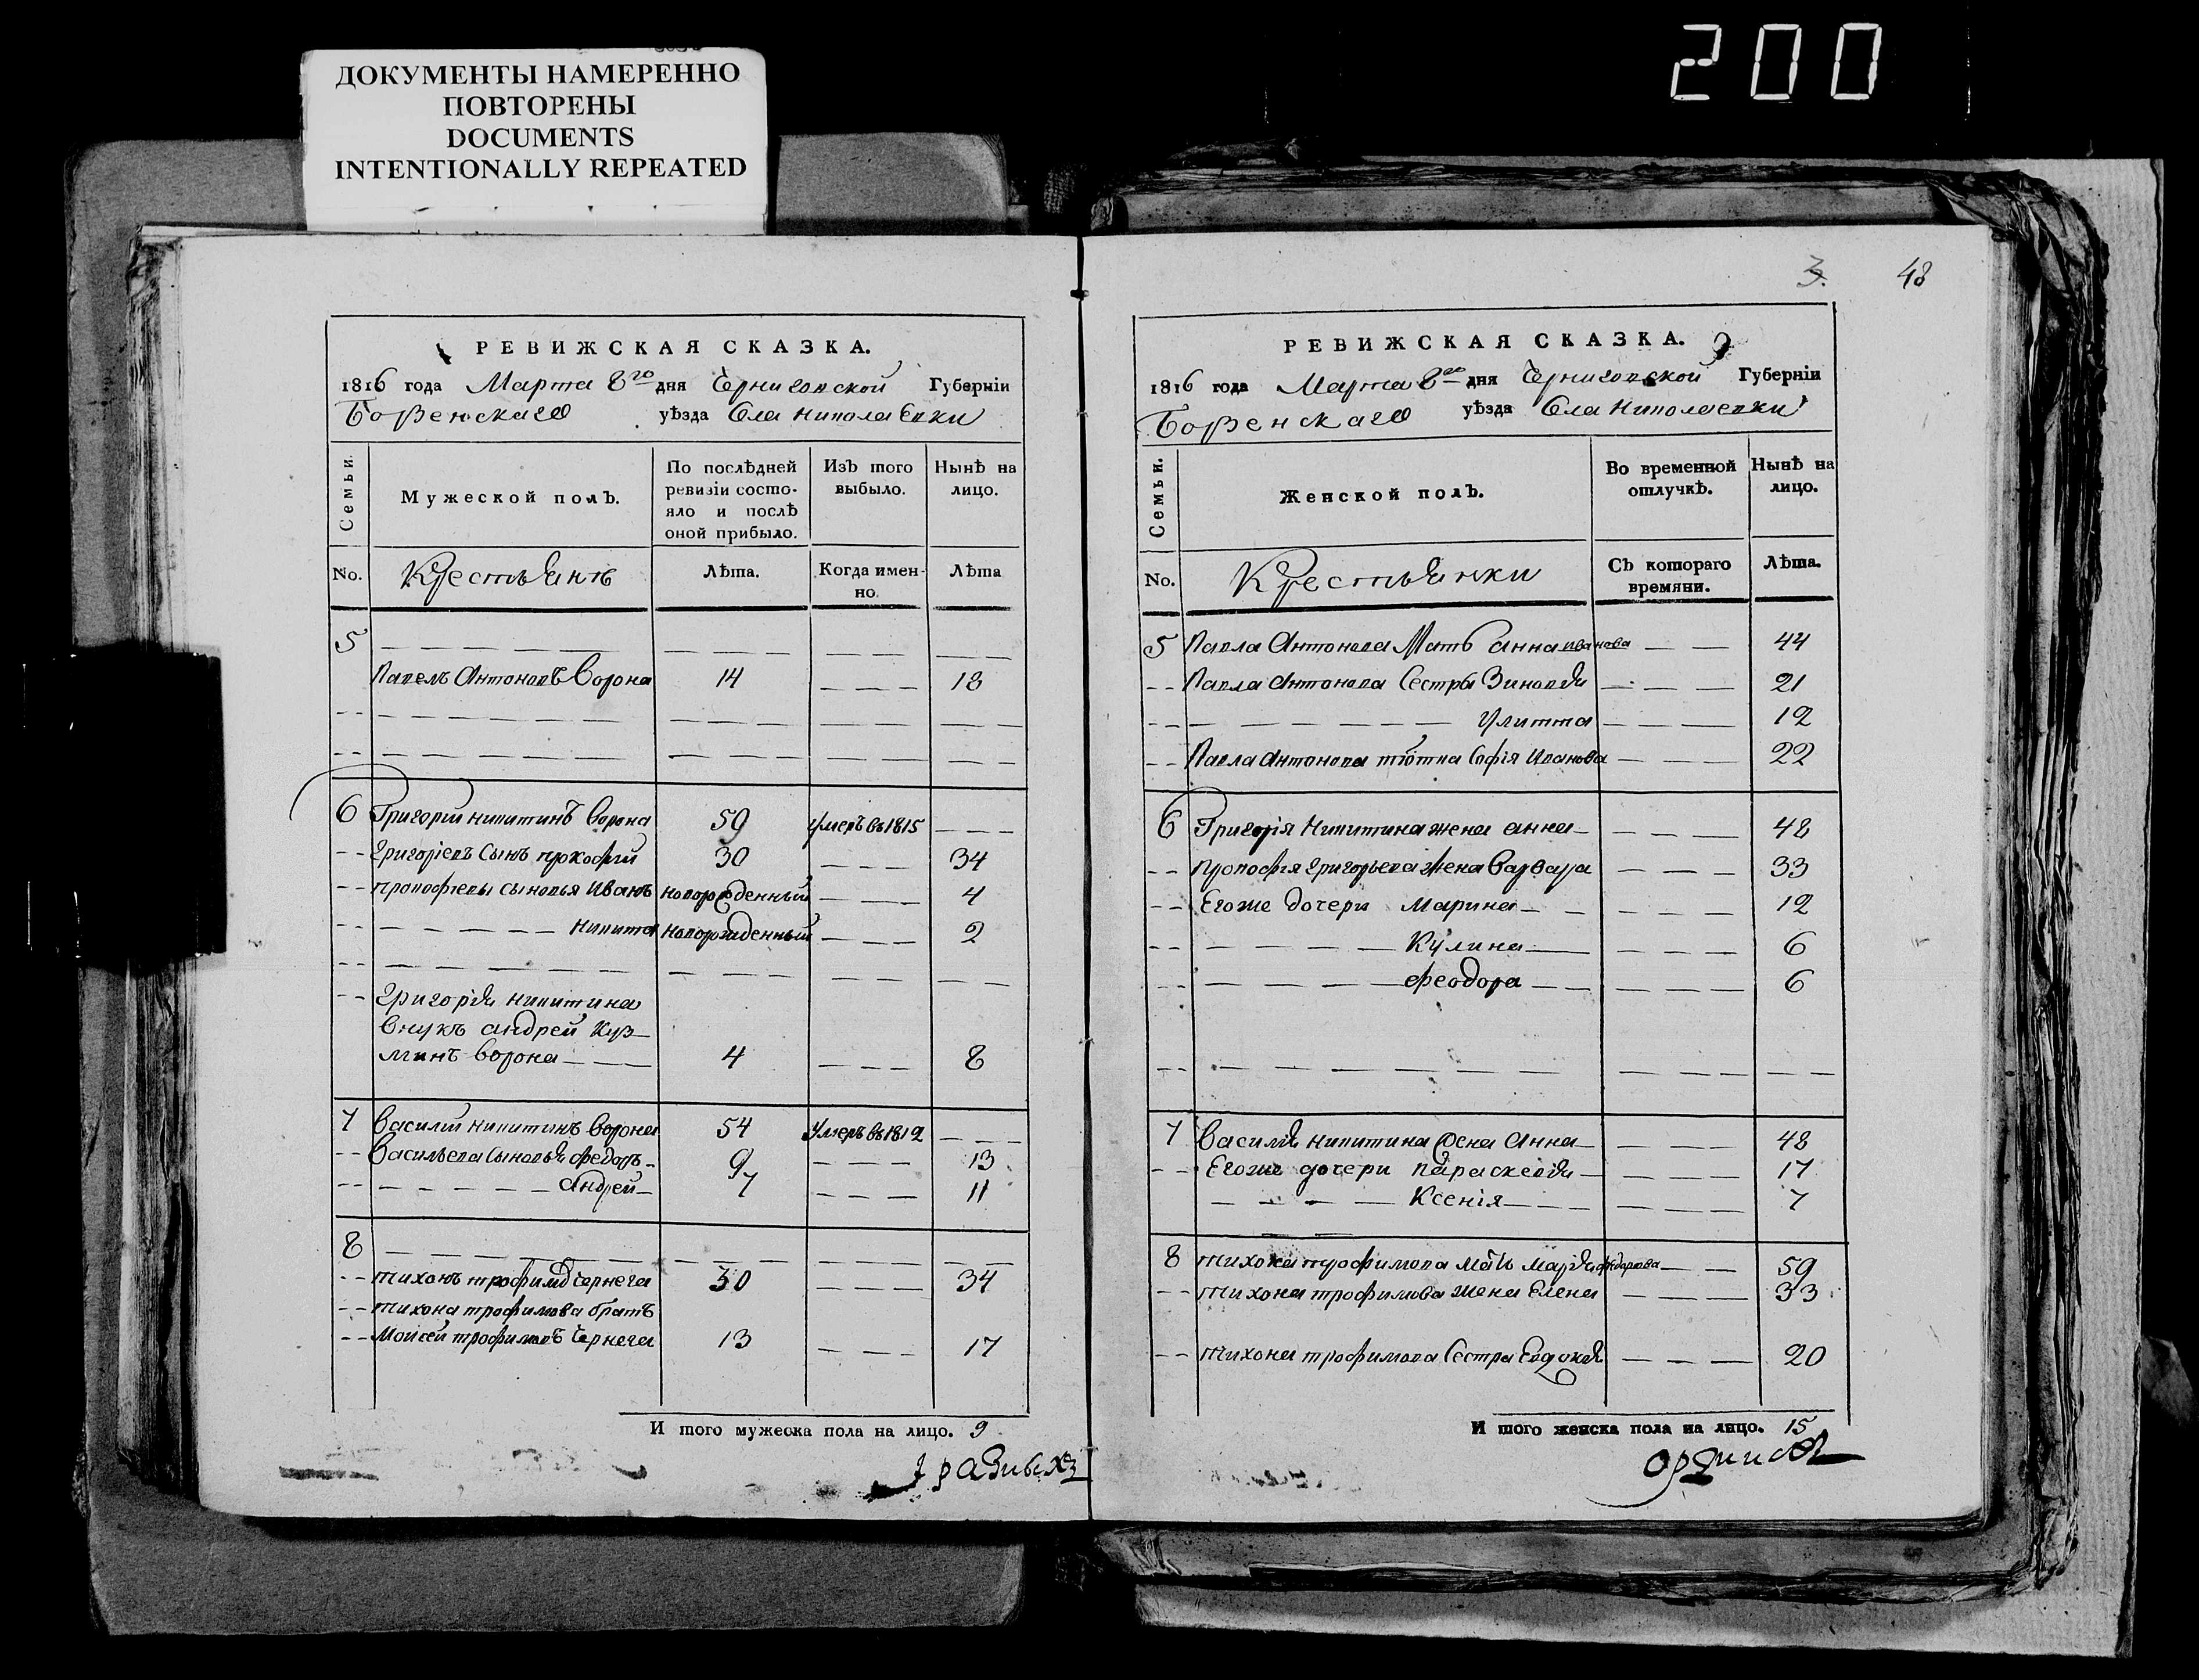 200
ДОКУМЕНТЫ НАМЕРЕННО
ПОВТОРЕНЫ
DOCUMENTS
INTENTIONALLY REPEATED
РЕВИЖСКАЯ СКАЗКА.
1816 года Марта 8го дня Черниговской Губерніи
Борзенскаго уѣзда Села Николаевки
Семьи.
Мужеской полъ.
По послѣдней
ревизіи состо-
яло и послѣ
оной прибыло.
Изъ того
выбыло.
Нынѣ на
лицо.
No. Крестьянъ Лѣта. Когда имен-
но. Лѣта
5
Павелъ Антоновъ Ворона 14 18
6 Григорій Никитинъ Ворона 59 Умеръ въ 1815
Григоріевъ Сынъ Прокофій 30 34
Прокофіевы Сыновья Иванъ новорожденный 4
Никита новорожденный 2
Григорія Никитина
внукъ Андрей Куз-
минъ Ворона 4 8
7 Василій Никитинъ Ворона 54 Умеръ въ 1812
Васильева Сыновья Федоръ 9 13
Андрей 7 11
8
Тихонъ Трофимовъ Чернега 30 34
Тихона Трофимова братъ
Моисей Трофимовъ Чернега 13 17
И того мужеска пола на лицо. 9
3. 48
РЕВИЖСКАЯ СКАЗКА.
1816 года Марта 8го дня Черниговской Губерніи
Борзенскаго уѣзда Села Николаевки
Семьи.
Женской полъ.
Во временной
отлучкѣ.
Нынѣ на
лицо.
No. Крестьянки Съ котораго
времяни. Лѣта.
5 Павла Антонова Мать Анна Иванова 44
Павла Антонова Сестры Зиновія 21
Улитта 12
Павла Антонова тютка Софія Иванова 22
6 Григорія Никитина жена Анна 48
Прокофія Григорьева жена Варвара 33
Егоже дочери Марина 12
Кулина 6
Феодора 6
7 Василія Никитина жена Анна 48
Егоже дочери Параскевія 17
Ксенія 7
8 Тихона Трофимова мать Марія Федорова 59
Тихона Трофимова жена Елена 33
Тихона Трофимова Сестра Евдокія 20
И того женска пола на лицо. 15